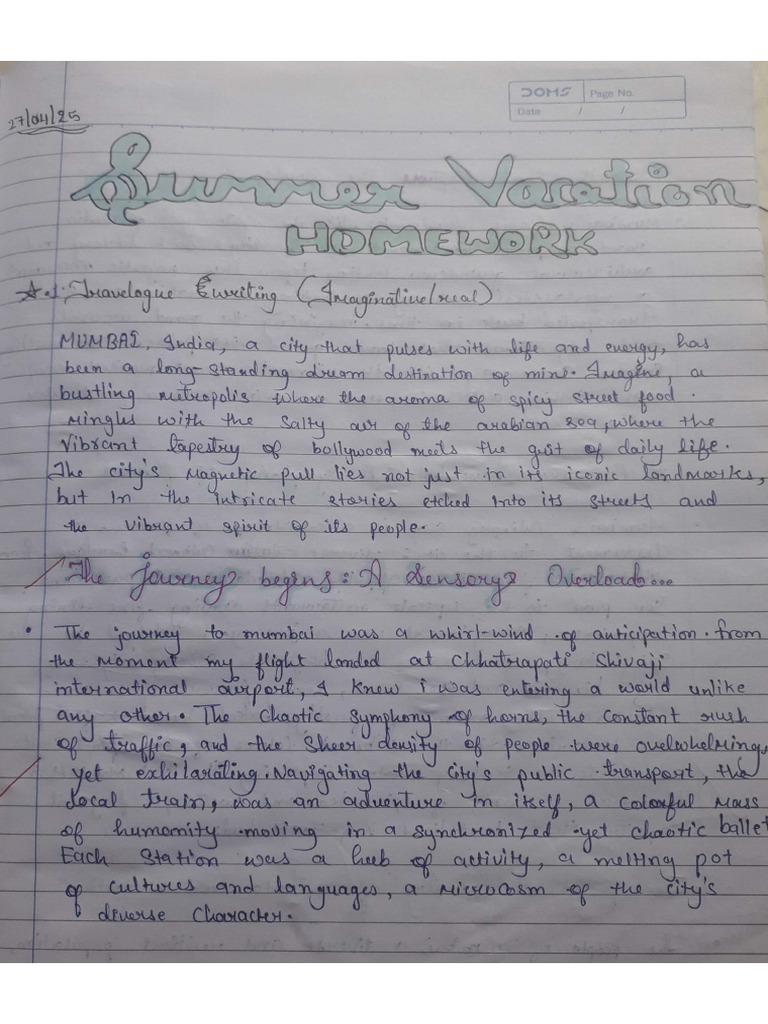 DOMS
Page No.
Date / /
27/04/25
Summer Vacation
HOMEWORK
1. Travelogue writing (Imaginative/real)
MUMBAI, India, a city that pulses with life and energy, has
been a long-standing dream destination of mine. Imagine, a
bustling metropolis where the aroma of spicy street food.
Mingles with the salty air of the arabian sea, where the
vibrant tapestry of bollywood meets the grist of daily life.
The city's magnetic pull lies not just in its iconic landmarks,
but in the intricate stories etched into its streets and
the vibrant spirit of its people.
The Journey begins: A Sensory Overload...
• The journey to mumbai was a whirl-wind of anticipation. from
the moment my flight landed at Chhatrapati Shivaji
international airport, I knew i was entering a world unlike
any other. The chaotic symphony of horns, the constant rush
of traffic, and the sheer density of people were overwhelming,
yet exhilarating. Navigating the city's public transport, the
local train, was an adventure in itself, a colorful mass
of humanity moving in a synchronized yet chaotic ballet
Each station was a heeb of activity, a melting pot
of cultures and languages, a microcosm of the city's
diverse character.